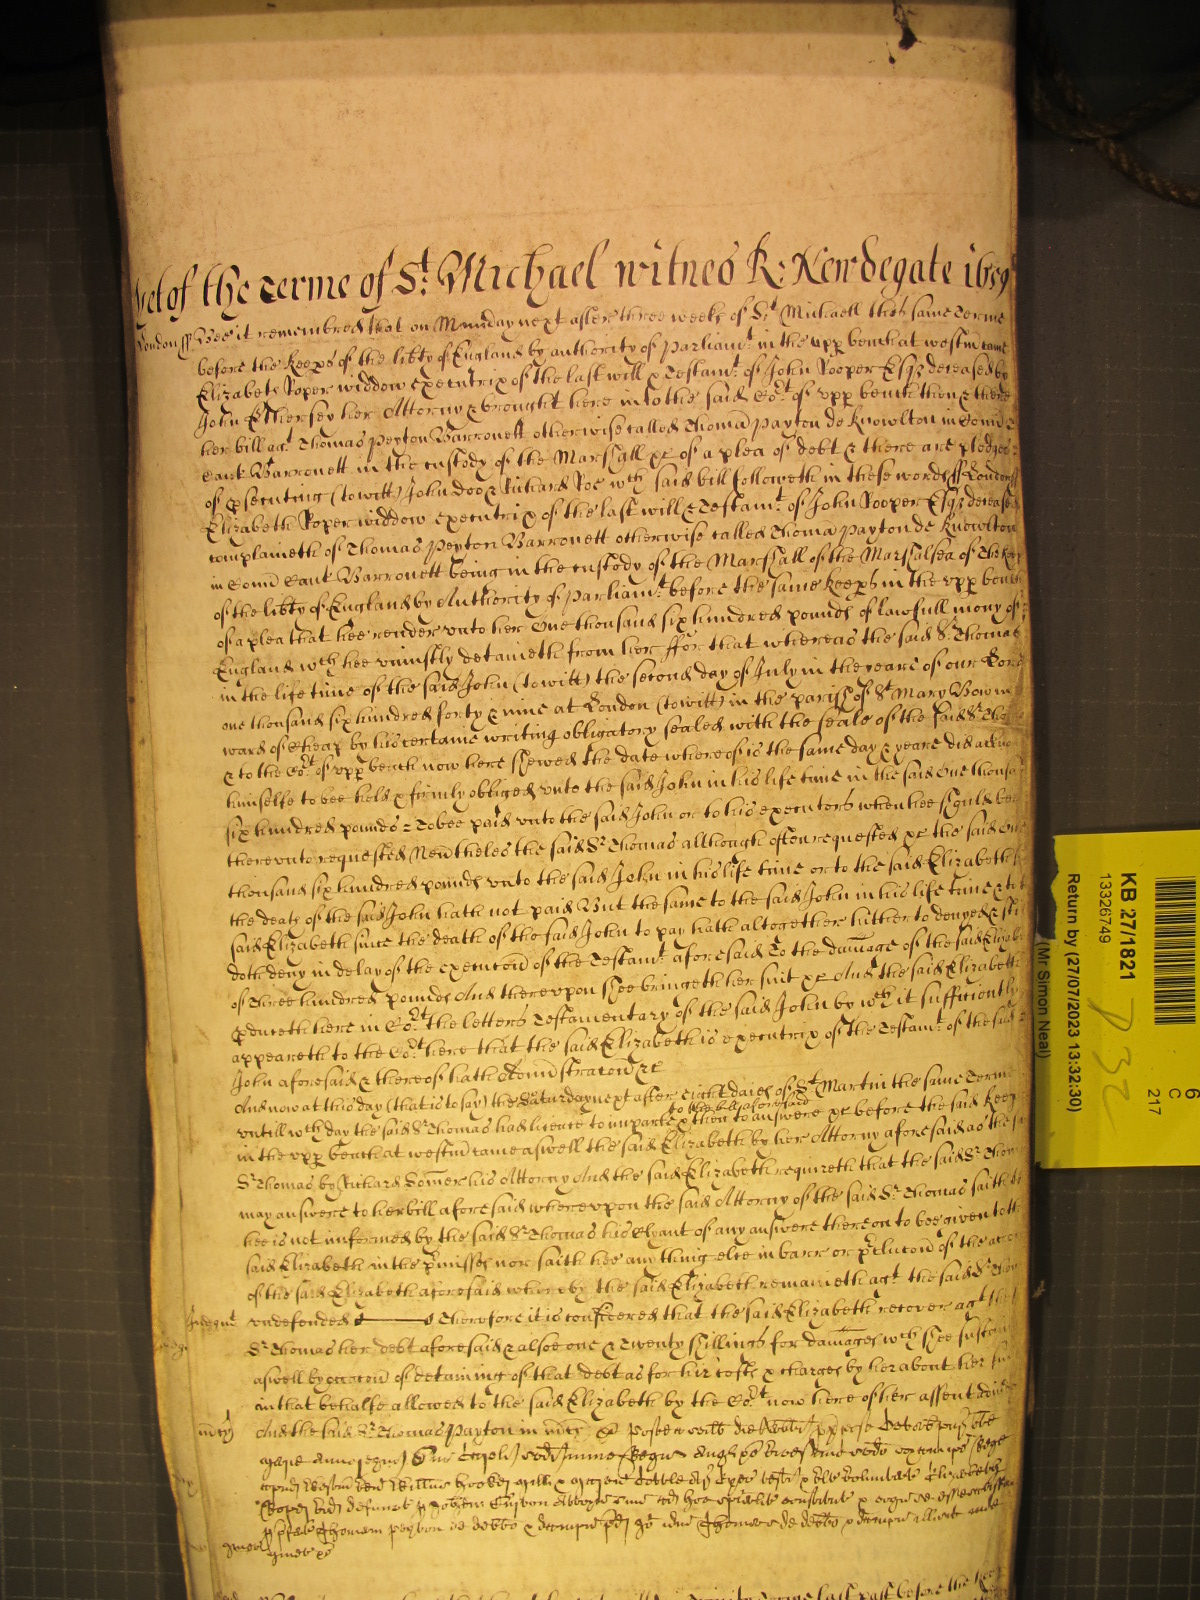 yet of the Terme of St: Michael witnes R: Newdegate 1659
London ss Bee it remembred that on Munday next after three weeks of St Michaell this same Terme
before the Keepers of the libty of England by authority of Parliamt in the upp bench at westm came
Elizabeth Roper widdow executrix of the last will & Testamt of John Rooper Esqr deceased by
John Hersey her Attorny & brought here into the said Cort of upp bench then & there
her bill agt Thomas Peyton Barronett otherwise called Thoma Payton de Knowlton in Comit
Cant Barronett in the custody of the Marshall &c of a plea of debt & there are pledges
of psecuting (to witt) John Doo & Richard Roe wch said bill followeth in these words ss London ss
Elizabeth Roper widdow executrix of the last will & Testamt of John Rooper Esqr deceased
complaineth of Thomas Peyton Barronett otherwise called Thoma Payton de Knowlton
in Comit Cant Barronett being in the custody of the Marshall of the Marshalsea of the Keep
of the libty of England by Authority of Parliamt before the same Keeps in the upp bench
of a plea that hee render unto her One thousand six hundred pounds of lawfull mony of
England wch hee uniustly detaineth from her ffor that whereas the said Sr Thomas
in the life time of the said John (to witt) the second day of July in the yeare of our Lord
one thousand six hundred forty & nine at London (to witt) in the parish of St Mary Bow in
ward of Cheap by his certaine writing obligatory sealed with the seale of the said Sr Tho
& to the Cort of upp bench now here shewed the date whereof is the same day & yeare did acknow
himselfe to bee held & firmly obliged unto the said John in his life time in the said One thousa
six hundred pounds To bee paid unto the said John or to his executers when hee should bee
thereunto requested Nevtheles the said Sr Thomas although often requested &c the said one
thousand six hundred pounds unto the said John in his life time or to the said Elizabeth
the death of the said John hath not paid But the same to the said John in his life time & to t
said Elizabeth since the death of the said John to pay hath altogether hitherto denyed & sti
doth deny in delay of the execucon of the Testamt aforesaid To the damage of the said Elizabe
of Three hundred pounds And thereupon shee bringeth her suit &c And the said Elizabeth
pduceth here in Cort the letters Testamentary of the said John by wch it sufficiently
appeareth to the Cort here that the said Elizabeth is executrix of the Testamt of the said
John aforesaid & thereof hath Adminstracon &c
And now at this day (that is to say) the Saturday next after eight daies of St Martin the same Terme
to the bill aforesaid
untill wch day the said Sr Thomas had licence to imparle & then to answere &c before the said Keep
in the upp bench at westm came aswell the said Elizabeth by her Attorny aforesaid as the sa
Sr Thomas by Richard Somer his Attorny And the said Elizabeth requireth that the said Sr Thom
may answere to her bill aforesaid whereupon the said Attorny of the said Sr Thomas saith th
hee is not informed by the said Sr Thomas his Clyant of any answere thereon to bee given to the
said Elizabeth in the pmisses nor saith hee any thing else in barr or pclucon of the accon
of the said Elizabeth aforesaid whereby the said Elizabeth remaineth agt the said Sr Thom
undefended Therefore it is considered that the said Elizabeth recover agt the s
Sr Thomas her debt aforesaid & alsoe one & Twenty shillings for damages wch shee sustein
aswell by occacon of detaining of that debt as for hir costs & charges by her about her sui
in that behalfe allowed to the said Elizabeth by the Cort now here of her assent
And the said Sr Thomas Payton in mcy &c
KB 27/1821
13326749
Return by (27/07/2023 13:32:30)
(Mr Simon Neal)
6
C
217